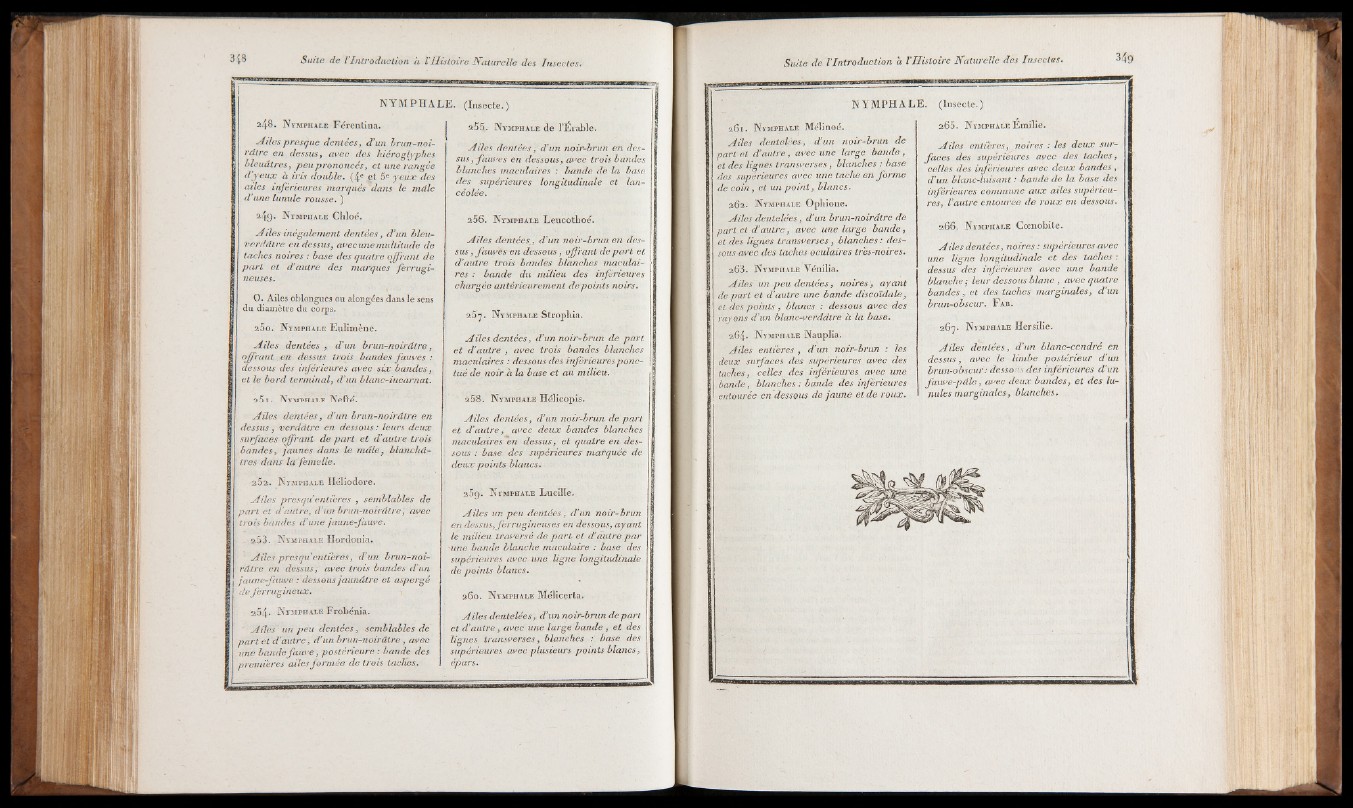 348
Suite de l'Introduction à l'Histoire Naturelle des Insectes.
NYMPHALE. (Insecte.)
248. Nymphale Férentina.
Ailes presque dentées, d'un brun-noi-
râtre en dessus, avec des hiéroglyphes
bleuâtres, peu prononcés, et une rangée
d'yeux à iris double. (4e et 5e yeux des
ailes inférieures marqués dans le mâle
d'une lunule rousse.)
249. Nymphale Chloé.
Ailes inégalement dentées, d'un bleu-
verdâtre en dessus, avec une multitude de
taches noires : base des quatre offrant de
part et d'autre des marques ferrugi-
neuses.
O. Ailes oblongues ou alongées dans le sens
du diamètre du corps.
250. Nymphale Eulimène.
Ailes dentées , d'un brun-noirâtre,
offrant en dessus trois bandes fauves :
dessous des inférieures avec six bandes,
et le bord terminal, d'un blanc-incarnat.
251. Nymphale Nefté.
Ailes dentées, d'un brun-noirâtre en
dessus, verdâtre en dessous : leurs deux
surfaces offrant de part et d'autre trois
bandes, jaunes dans le mâle, blanchâ-
tres dans la femelle.
252. Nymphale Héliodore.
Ailes presqu'entières , semblables de
part et d'autre, d'un brun-noirâtre, avec
trois bandes d'une jaune-fauve.
253. Nymphale Hordonia.
Ailes presqu'entières, d'un brun-noi-
râtre en dessus, avec trois bandes d'un
jaune-fauve : dessous jaunâtre et aspergé
de ferrugineux.
254. Nymphale Frobénia.
Ailes un peu dentées, semblables de
part et d'autre, d'un brun-noirâtre, avec
une bande fauve, postérieure : bande des
premières ailes formée de trois taches.
255. Nymphale de l'Érable.
Ailes dentées, d'un noir-brun en des-
sus, fauves en dessous, avec trois bandes
blanches maculaires : bande de la base
des supérieures longitudinale et lan-
céolée.
256. Nymphale Leucothoé.
Ailes dentées, d'un noir-brun en des-
sus, fauves en dessous, offrant de part et
d'autre trois bandes blanches maculai-
res : bande du milieu des inférieures
chargée antérieurement de points noirs.
257. Nymphale Strophia.
Ailes dentées, d'un noir-brun de part
et d'autre , avec trois bandes blanches
maculaires : dessous des inférieures ponc-
tué de noir à la base et au milieu.
258. Nymphale Hélicopis.
Ailes dentées, d'un noir-brun de part
et d'autre, avec deux bandes blanches
maculaires en dessus, et quatre en des-
sous : base des supérieures marquée de
deux points blancs.
259. Nymphale Lucille.
Ailes un peu dentées, d'un noir-brun
en dessus, ferrugineuses en dessous, ayant
le milieu traversé de part et d'autre par
une bande blanche maculaire : base des
supérieures avec une ligne longitudinale
de points blancs.
260. Nymphale Mélicerta.
Ailes dentelées, d'un noir-brun de part
et d'autre, avec une large bande, et des
lignes transverses, blanches : base des
supérieures avec plusieurs points blancs,
épars.
Suite de l'Introduction à l'Histoire Naturelle des Insectes.
349
NYMPHALE. (Insecte.)
261. Nymphale Mélinoé.
Ailes dentelées, d'un noir-brun de
part et d'autre, avec une large bande,
et des lignes transverses, blanches : base
des supérieures avec une tache en forme
de coin, et un point, blancs.
262. Nymphale Ophione.
Ailes dentelées, d'un brun-noirâtre de
part et d'autre, avec une large bande,
et des lignes transverses, blanches : des-
sous avec des taches oculaires très-noires.
263. Nymphale Vénilia.
Ailes un peu dentées, noires, ayant
de part et d'autre une bande discoïdale,
et des points, blancs : dessous avec des
rayons d'un blanc-verdâtre à la base.
264. Nymphale Nauplia.
Ailes entières , d'un noir-brun : les
deux surfaces des supérieures avec des
taches, celles des inférieures avec une
bande, blanches : bande des inférieures
entourée en dessous de jaune et de roux.
265. Nymphale Émilie.
Ailes entières, noires : les deux sur-
faces des supérieures avec des taches,
celles des inférieures avec deux bandes,
d'un blanc-luisant : bande de la base des
inférieures commune aux ailes supérieu-
res, l'autre entourée de roux en dessous.
266. Nymphale Cœnobite.
Ailes dentées, noires : supérieures avec
une ligne longitudinale et des taches :
dessus des inférieures avec une bande
blanche; leur dessous blanc, avec quatre
bandes, et des taches marginales, d'un
brun-obscur. Fab.
267. Nymphale Hersilie.
Ailes dentées, d'un blanc-cendré en
dessus, avec le limbe postérieur d'un
brun-obscur : dessous des inférieures d'un
fauve-pâle, avec deux bandes, et des lu-
nules marginales, blanches.